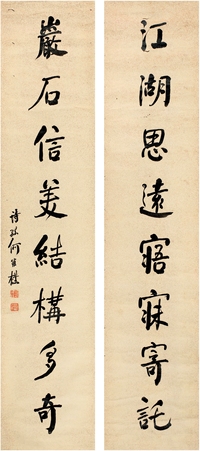 江湖思遠寤寐寄託
巖石信美結構多奇
詩孫何維樸